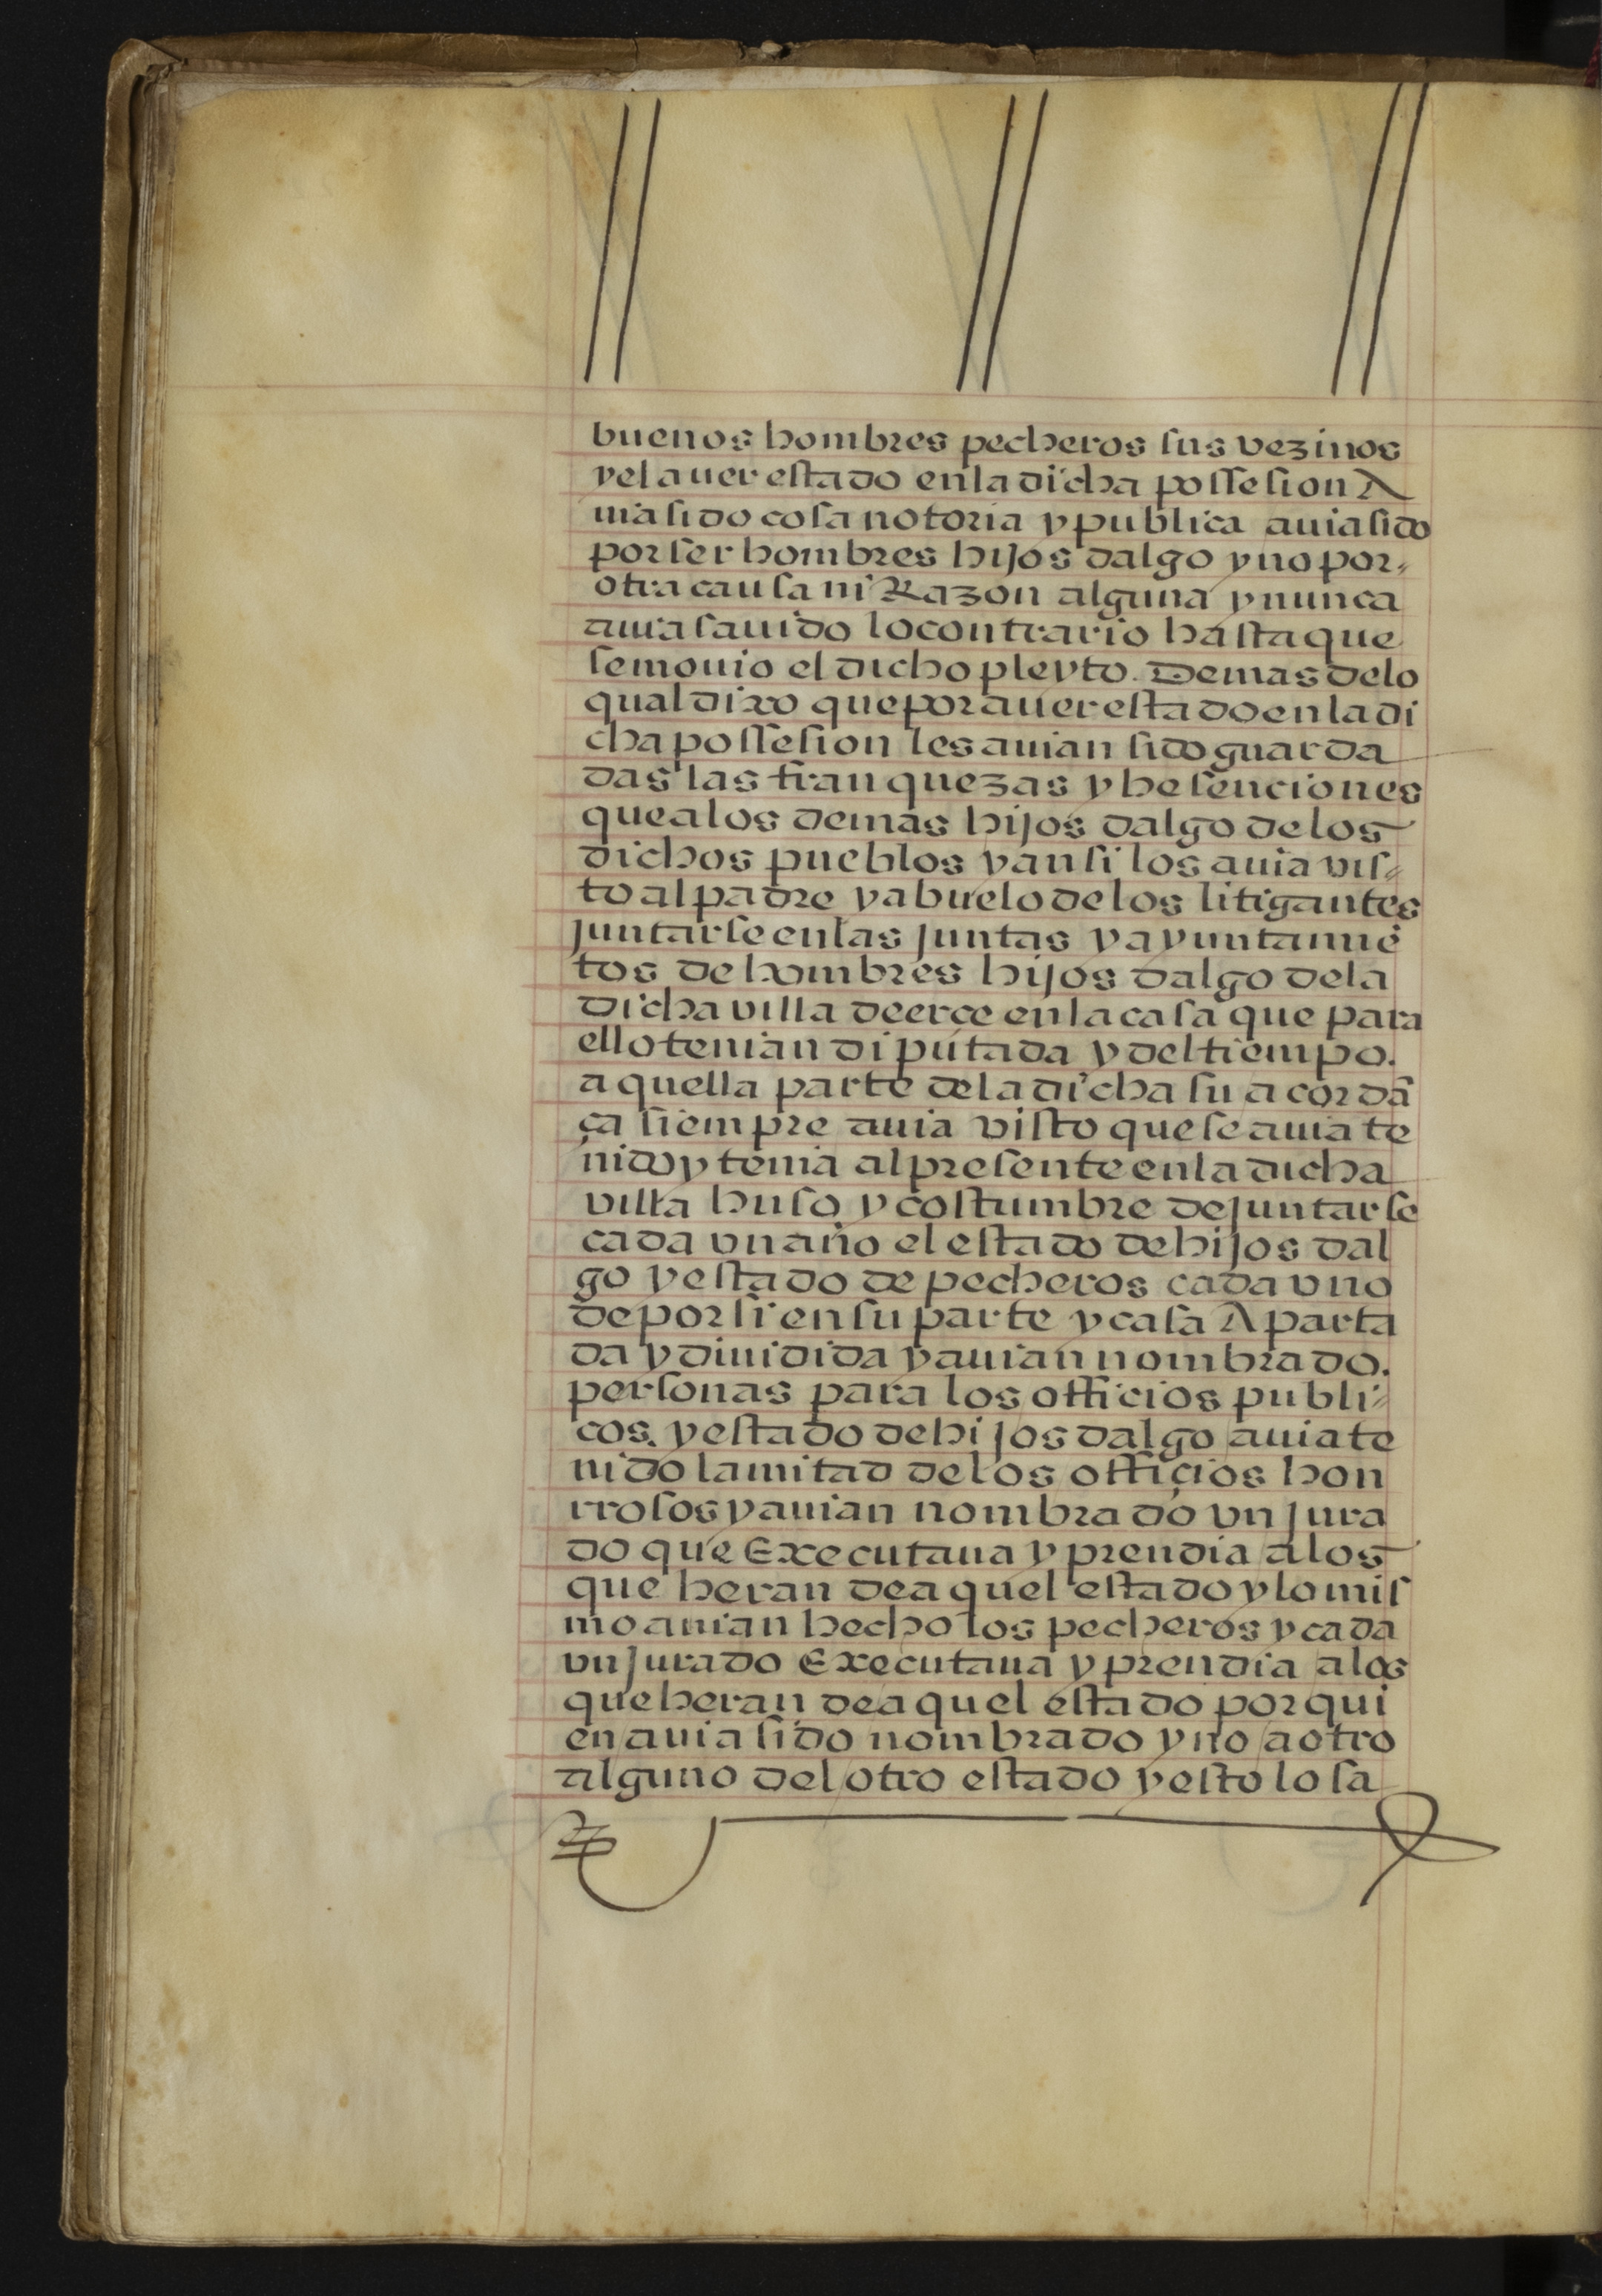 buenos hombres pecheros sus vezinos
y el auer estado en la dicha possesion A
uia sido cosa notoria y publica auia sido
por ser hombres hijos dalgo y no por
otra causa ni Razon alguna y nunca
auia sauido lo contrario hasta que
se mouio el dicho pleyto. Demas de lo
qual dixo que por auer estado en la di
cha possesion les auian sido guarda
das las franquezas y hesenciones
que a los demas hijos dalgo de los
dichos pueblos y ansi los auia vis
to al padre y abuelo de los litigantes
juntarse en las juntas y ayuntamiē
tos de hombres hijos dalgo de la
dicha villa de erce en la casa que para
ello tenian diputada y del tiempo.
aquella parte de la dicha su acordā
ça siempre auia visto que se auia te
nido y tenia al presente en la dicha
villa huso y costumbre de juntarse
cada vn año el estado de hijos dal
go y estado de pecheros cada vno
de por si en su parte y casa Aparta
da y diuidida y auian nombrado.
personas para los officios publi
cos. y estado de hijos dalgo auia te
nido la mitad de los offiçios hon
rrosos y auian nombrado vn jura
do que Executaua y prendia a los
que heran de aquel estado y lo mis
mo auian hecho los pecheros y cada
vn jurado Executaua y prendia a los
que heran de aquel estado por qui
en auia sido nombrado y no a otro
alguno del otro estado y esto lo sa